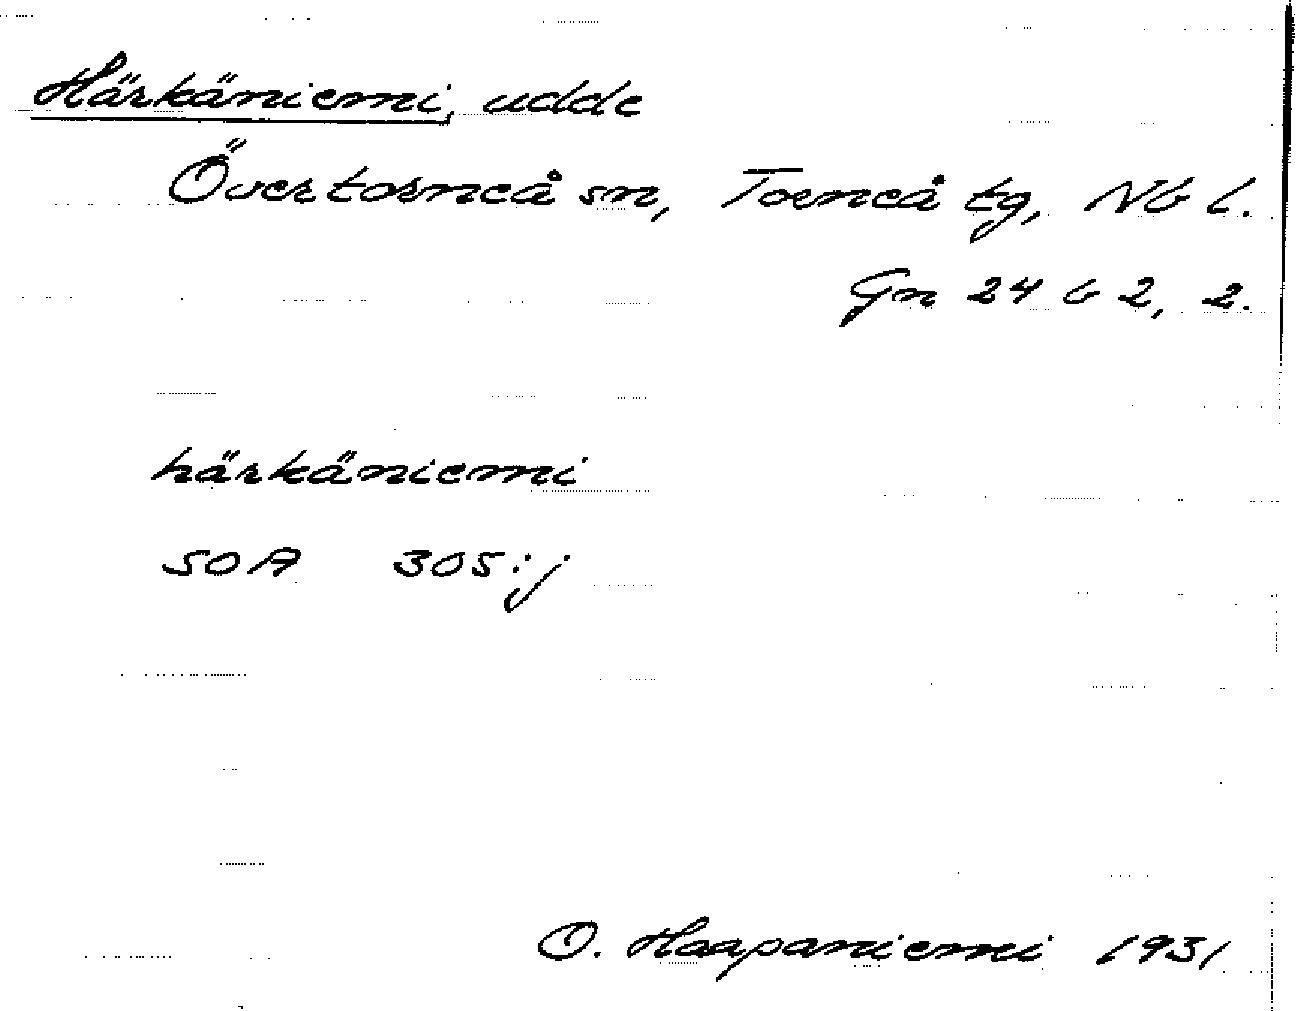 Härkäniemi, udde
Övertorneå sn, Torneå tg, Nb l.
Gn 24 b 2, 2.
härkäniemi
SOA 305:j
O. Haapaniemi 1931